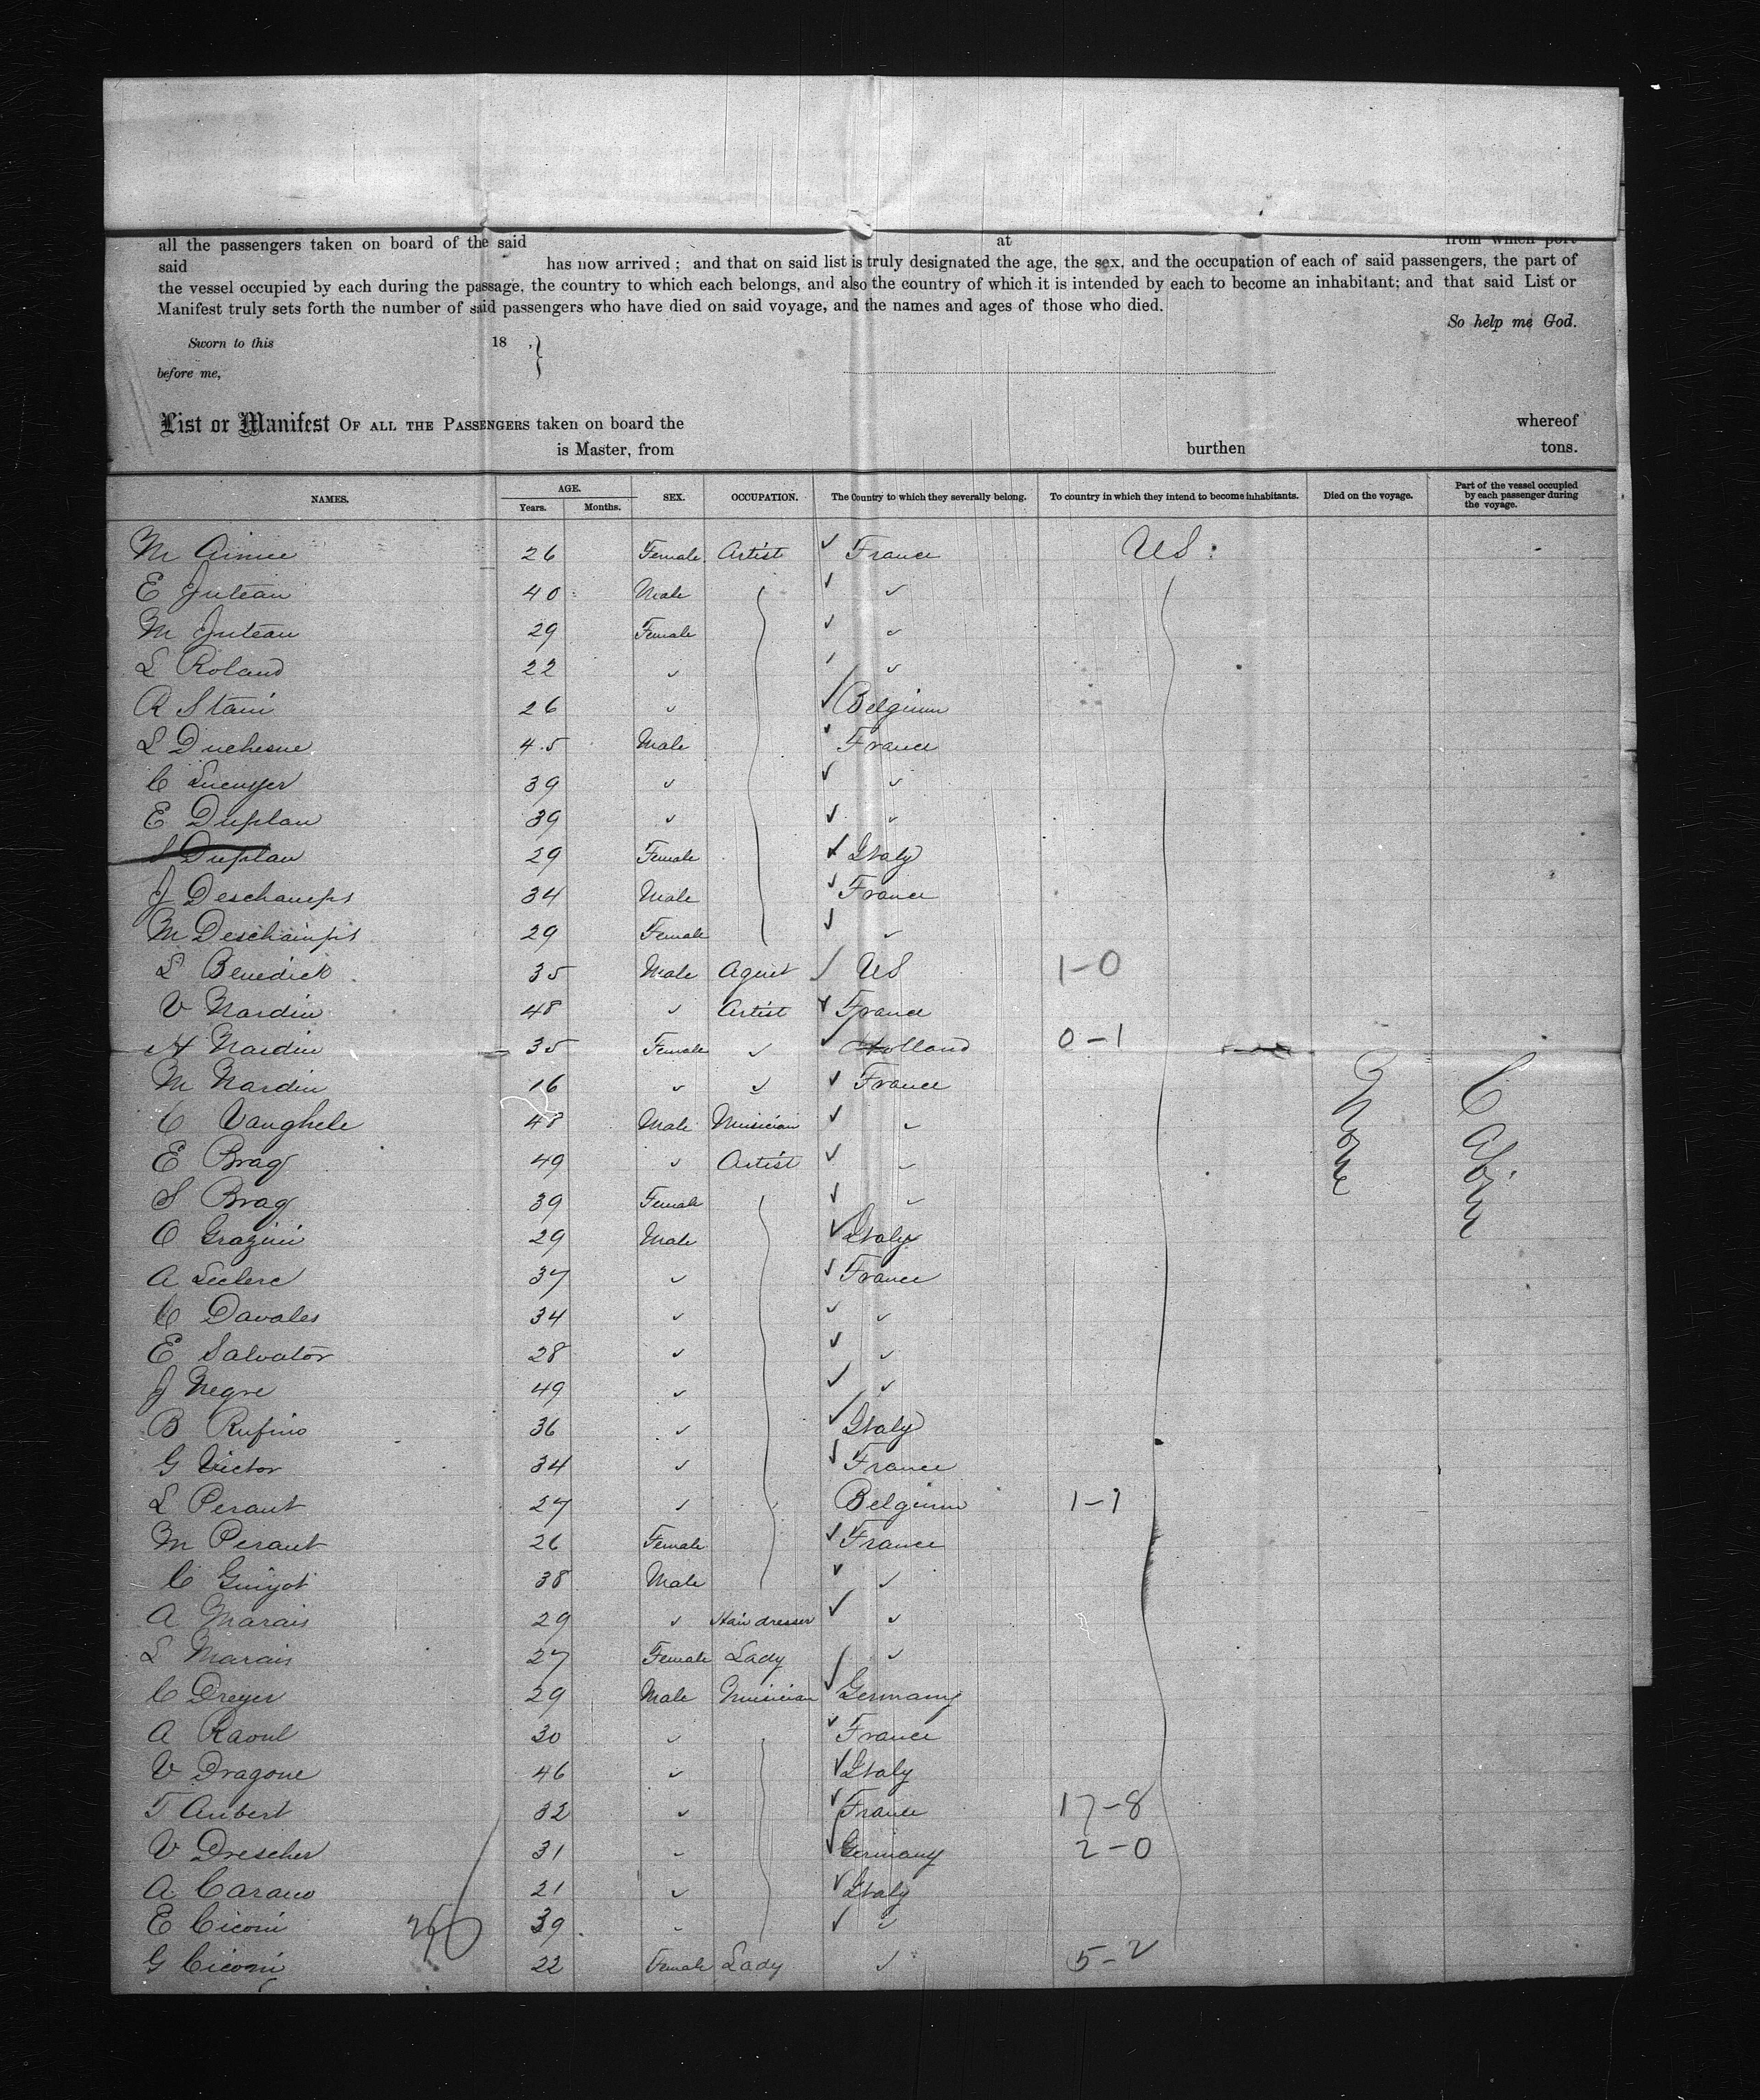 all the passengers taken on board of the said at from which port
said has now arrived; and that on said list is truly designated the age, the sex, and the occupation of each of said passengers, the part of
the vessel occupied by each during the passage, the country to which each belongs, and also the country of which it is intended by each to become an inhabitant; and that said List or
Manifest truly sets forth the number of said passengers who have died on said voyage, and the names and ages of those who died.
So help me God.
Sworn to this 18 , }
before me,
List or Manifest OF ALL THE PASSENGERS taken on board the whereof
is Master, from burthen tons.
NAMES. AGE. Years. Months. SEX. OCCUPATION. The Country to which they severally belong. To country in which they intend to become inhabitants. Died on the voyage. Part of the vessel occupied by each passenger during the voyage.
M Aimee 26 Female Artist ✓ France US.
E Juteau 40 Male ✓ ✓
M Juteau 29 Female ✓ ✓
L Roland 22 ✓ ✓ ✓
R Stani 26 ✓ ✓ Belgium
L Duchesne 45 Male ✓ France
C Lucuyer 39 ✓ ✓ ✓
E Duplan 39 ✓ ✓ ✓
S Duplan 29 Female ✓ Italy
J Deschamps 34 Male ✓ France
M Deschamps 29 Female ✓ ✓
L Benedick 35 Male Agent ✓ US 1-0
V Nardin 48 ✓ Artist ✓ France
H Nardin 35 Female ✓ ✓ Holland 0-1
M Nardin 16 ✓ ✓ ✓ France
C Vanghele 48 Male Musician ✓ ✓
E Brag 49 ✓ Artist ✓ ✓
S Brag 39 Female ✓ ✓
O Grazini 29 Male ✓ Italy
A Leclerc 37 ✓ ✓ France
C Davales 34 ✓ ✓ ✓
E Salvator 28 ✓ ✓ ✓
J Negre 49 ✓ ✓ ✓
B Rufino 36 ✓ ✓ Italy
G Victor 34 ✓ ✓ France
L Peraut 27 ✓ Belgium 1-1
M Peraut 26 Female ✓ France
C Guiyot 38 Male ✓ ✓
A Marais 29 ✓ Hair dresser ✓ ✓
L Marais 27 Female Lady ✓ ✓
C Dreyer 29 Male Musician ✓ Germany
A Raoul 30 ✓ ✓ France
V Dragone 46 ✓ ✓ Italy
T Aubert 32 ✓ ✓ France 17-8
V Drescher 31 ✓ ✓ Germany 2-0
A Carano 21 ✓ ✓ Italy
E Ciconi 39 ✓ ✓ ✓
G Ciconi 22 Female Lady ✓ 5-2
None
Cabin